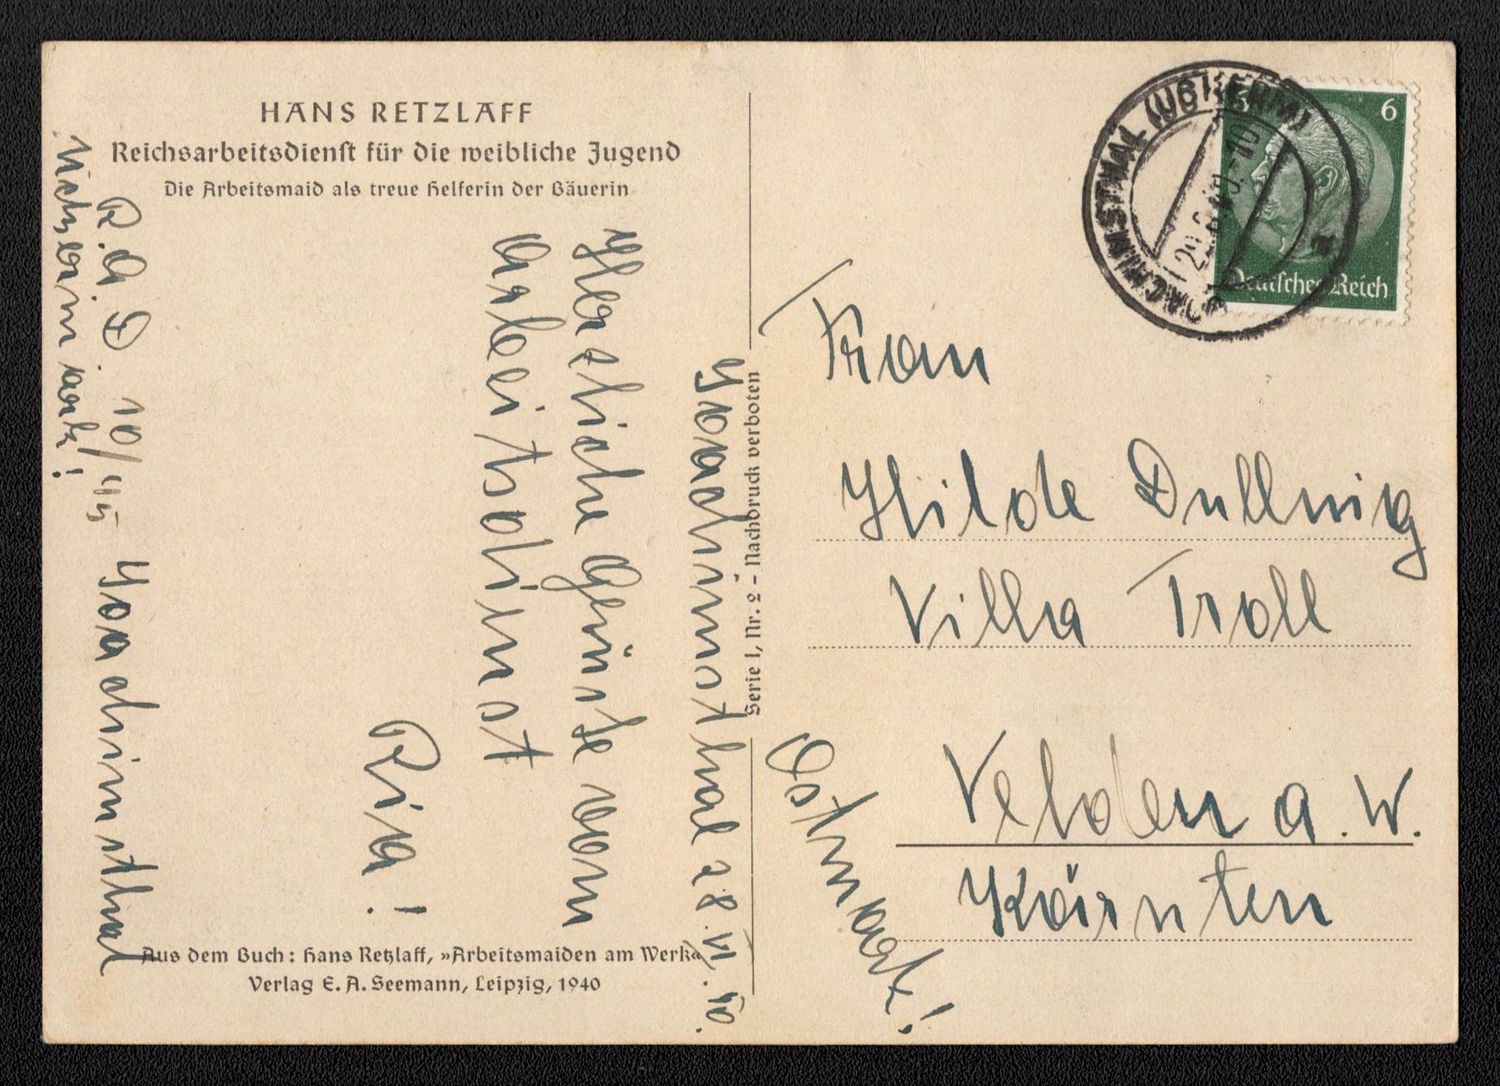 HANS RETZLAFF
Reichsarbeitsdienst für die weibliche Jugend
Die Arbeitsmaid als treue Helferin der Bäuerin
Yoachimsthal 28.VI.40.
Herzliche Grüsse vom
Arbeitsdienst
Ria!
R.A.D. 10/45 Yoachimsthal
Uckermark!
Aus dem Buch: Hans Retzlaff, »Arbeitsmaiden am Werk«
Verlag E. A. Seemann, Leipzig, 1940
Serie I, Nr. 2 – Nachdruck verboten
JOACHIMSTHAL (UCKERM)
29.6.40.-10
6 6
Deutsches Reich
Frau
Hilde Dullnig
Villa Troll
Velden a. W.
Kärnten
Ostmark!